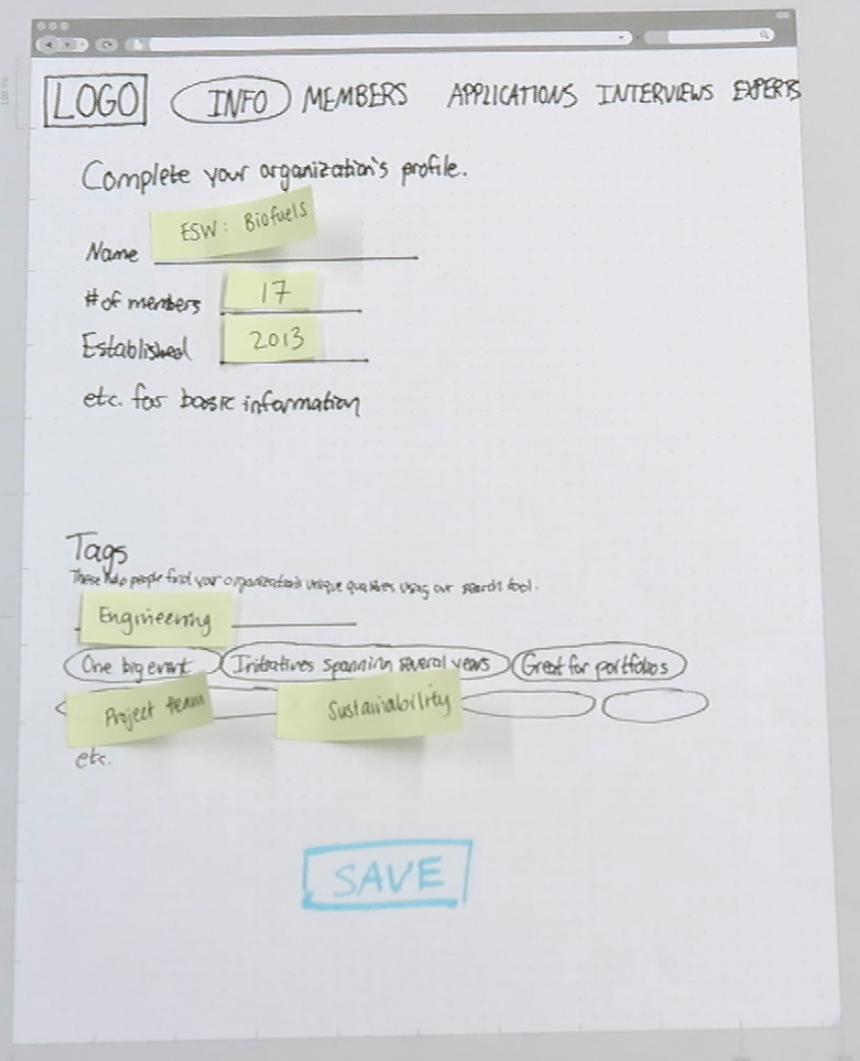 LOGO INFO MEMBERS APPLICATIONS INTERVIEWS EXPERTS
Complete your organization's profile.
Name ESW: Biofuels
# of members 17
Established 2013
etc. for basic information
Tags
These help people find your organization's unique qualities using our search tool.
Engineering
One big event Initiatives spanning several years Great for portfolios
Project team Sustainability
etc.
SAVE